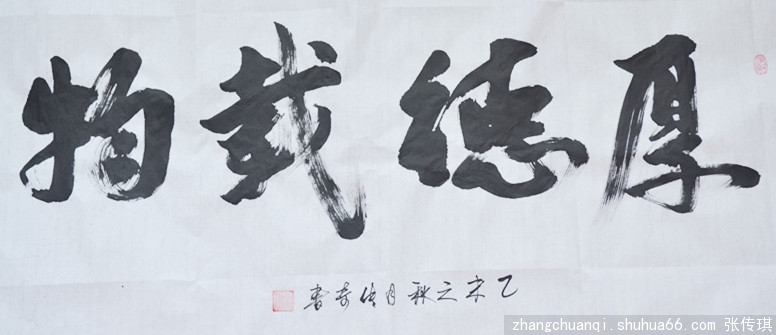 厚德载物
乙未之秋月传奇書
zhangchuanqi.shuhua66.com 张传琪